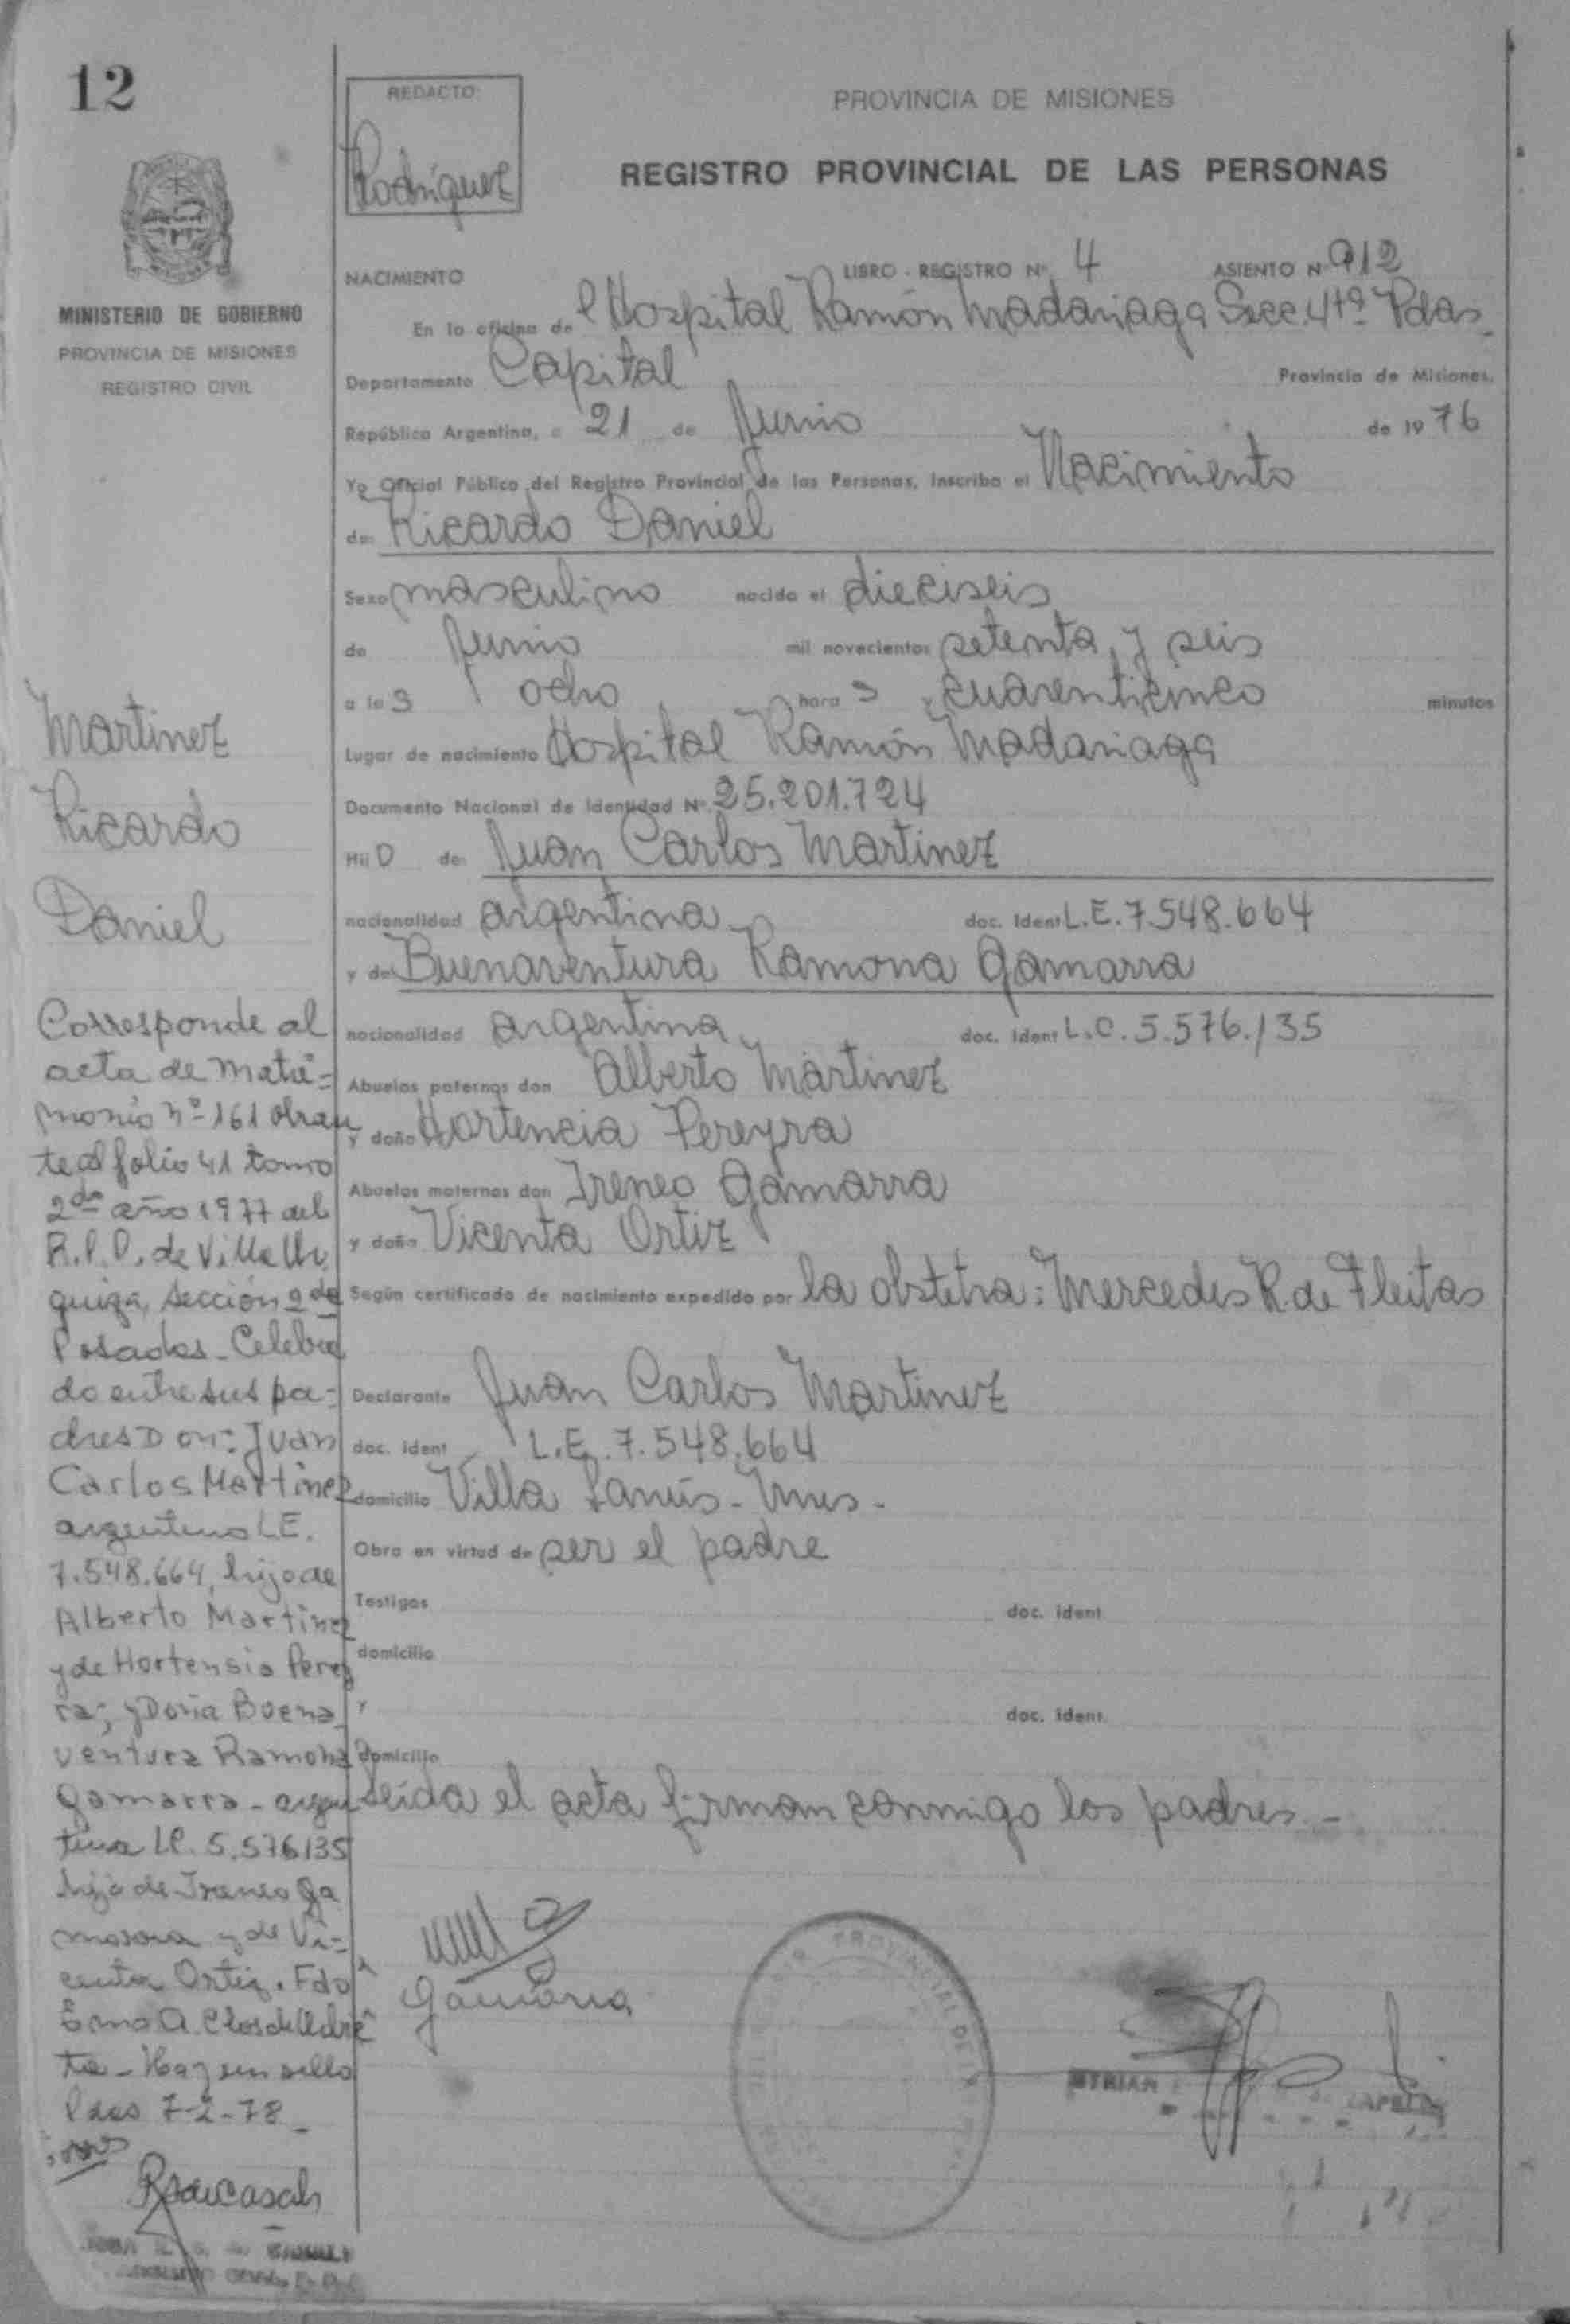 12
MINISTERIO DE GOBIERNO
PROVINCIA DE MISIONES
REGISTRO CIVIL
REDACTO
Rodríguez
PROVINCIA DE MISIONES
REGISTRO PROVINCIAL DE LAS PERSONAS
NACIMIENTO LIBRO - REGISTRO Nº 4 ASIENTO Nº 912
En la oficina de l Hospital Ramón Madariaga Secc. 4tª Pdas_
Departamento Capital Provincia de Misiones,
República Argentina, a 21 de Junio de 1976
Yo Oficial Público del Registro Provincial de las Personas, inscribo el Nacimiento
de: Ricardo Daniel
Sexo masculino nacido el dieciseis
de Junio mil novecientos setenta y seis
a las ocho horas y cuarenticinco minutos
Lugar de nacimiento Hospital Ramón Madariaga
Documento Nacional de Identidad Nº 25.201.724
Hijo de: Juan Carlos Martinez
nacionalidad argentina doc. Ident L.E. 7.548.664
y de: Buenaventura Ramona Gamarra
nacionalidad argentina doc. Ident L.C. 5.576.135
Abuelos paternos don Alberto Martinez
y doña Hortencia Pereyra
Abuelos maternos don Ireneo Gamarra
y doña Vicenta Ortiz
Según certificado de nacimiento expedido por la obstetra: Mercedes R. de Fleitas
Declarante Juan Carlos Martinez
doc. ident L.E. 7.548.664
domicilio Villa Lanús - Mnes -
Obra en virtud de ser el padre
Testigos doc. ident
domicilio
y doc. ident.
domicilio
Leída el acta firman conmigo los padres.-
Gamarra
Martinez
Ricardo
Daniel
Corresponde al
acta de Matri=
monio nº 161 obran
te al folio 41 tomo
2do año 1977 del
R.P.P. de Villa Ur
quiza, sección 2da
Posadas_ Celebra
do entre sus pa=
dres Don: Juan
Carlos Martinez
argentino L.E.
7.548.664, hijo de
Alberto Martinez
y de Hortensia Perey
ra; y Doña Buena_
ventura Ramona
Gamarra - argen
tina LC. 5.576135
hija de Ireneo Ga
marra y de Vi=
centa Ortiz. Fdo
Hay un sello
Pdas 7-2-78_